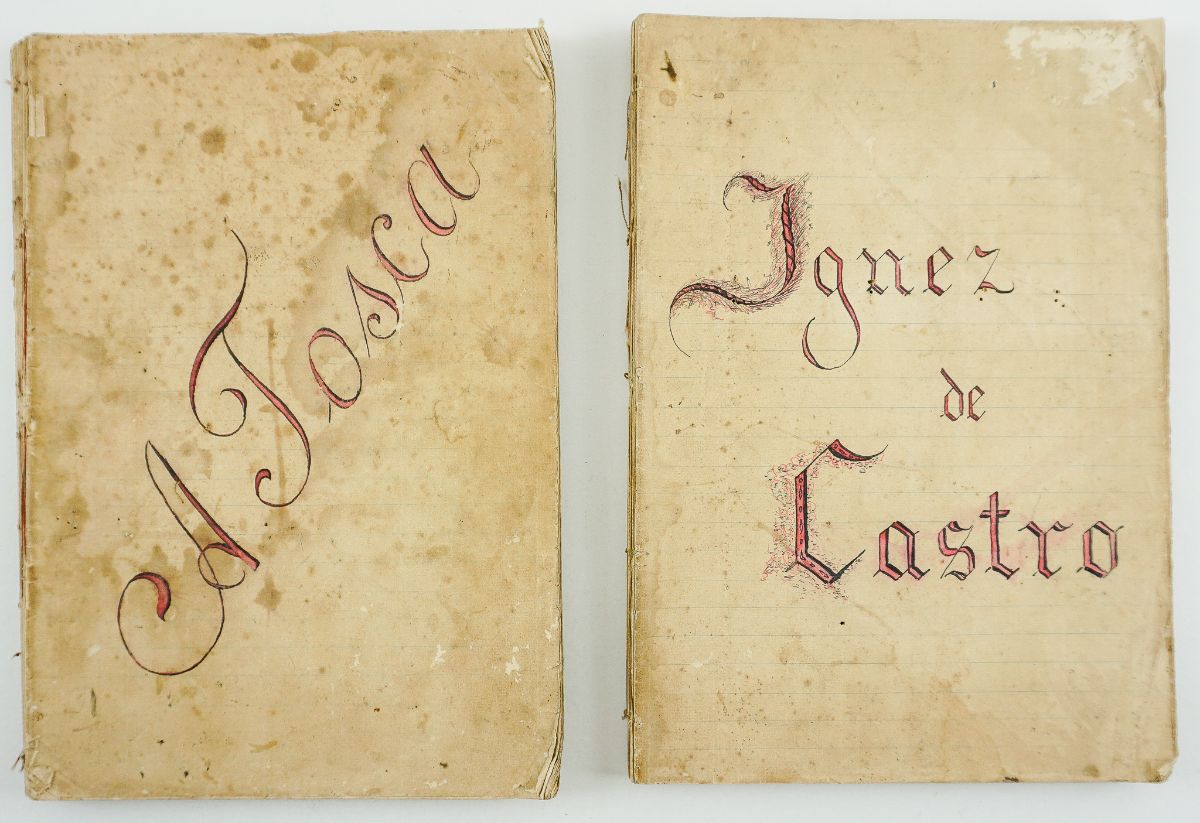 A Tosca
Ignez
de
Castro